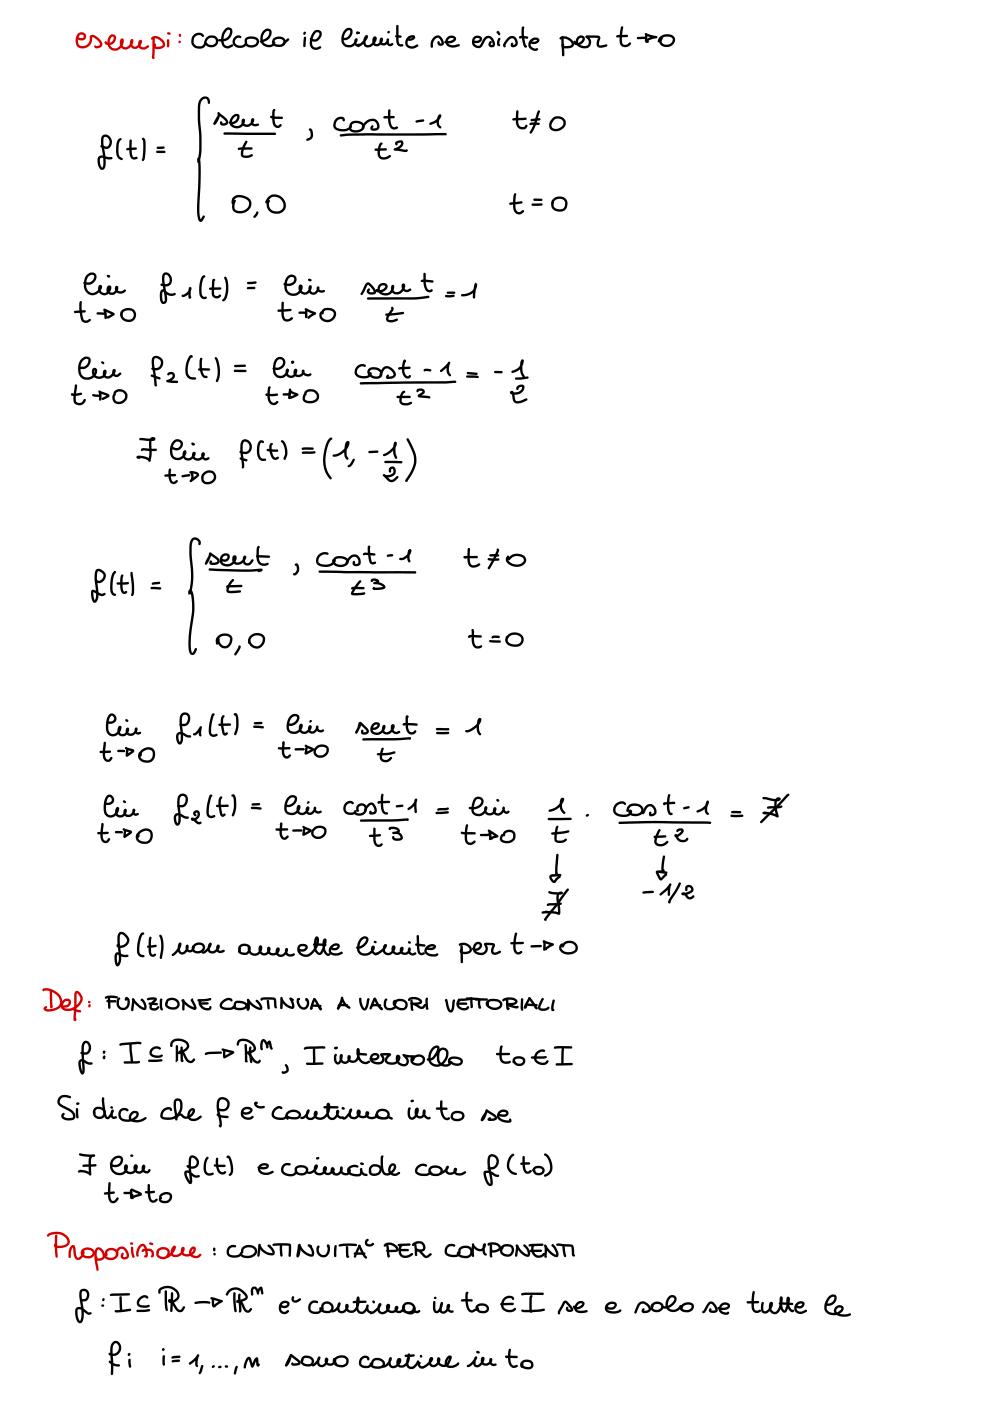 esempi: calcolo il limite se esiste per t→0
f(t) = { sen t / t , cos t - 1 / t²   t≠0
0,0   t=0
lim t→0 f₁(t) = lim t→0 sen t / t = 1
lim t→0 f₂(t) = lim t→0 cos t - 1 / t² = - 1/2
∃ lim t→0 f(t) = (1, - 1/2)
f(t) = { sen t / t , cos t - 1 / t³   t≠0
0,0   t=0
lim t→0 f₁(t) = lim t→0 sen t / t = 1
lim t→0 f₂(t) = lim t→0 cos t - 1 / t³ = lim t→0 1/t · cos t - 1 / t² = ∄
↓ ↓
∄ -1/2
f(t) non ammette limite per t→0
Def: FUNZIONE CONTINUA A VALORI VETTORIALI
f: I ⊆ ℝ → ℝⁿ, I intervallo t₀ ∈ I
Si dice che f è continua in t₀ se
∃ lim t→t₀ f(t) e coincide con f(t₀)
Proposizione: CONTINUITÀ PER COMPONENTI
f: I ⊆ ℝ → ℝⁿ è continua in t₀ ∈ I se e solo se tutte le
fi i=1,...,n sono continue in t₀